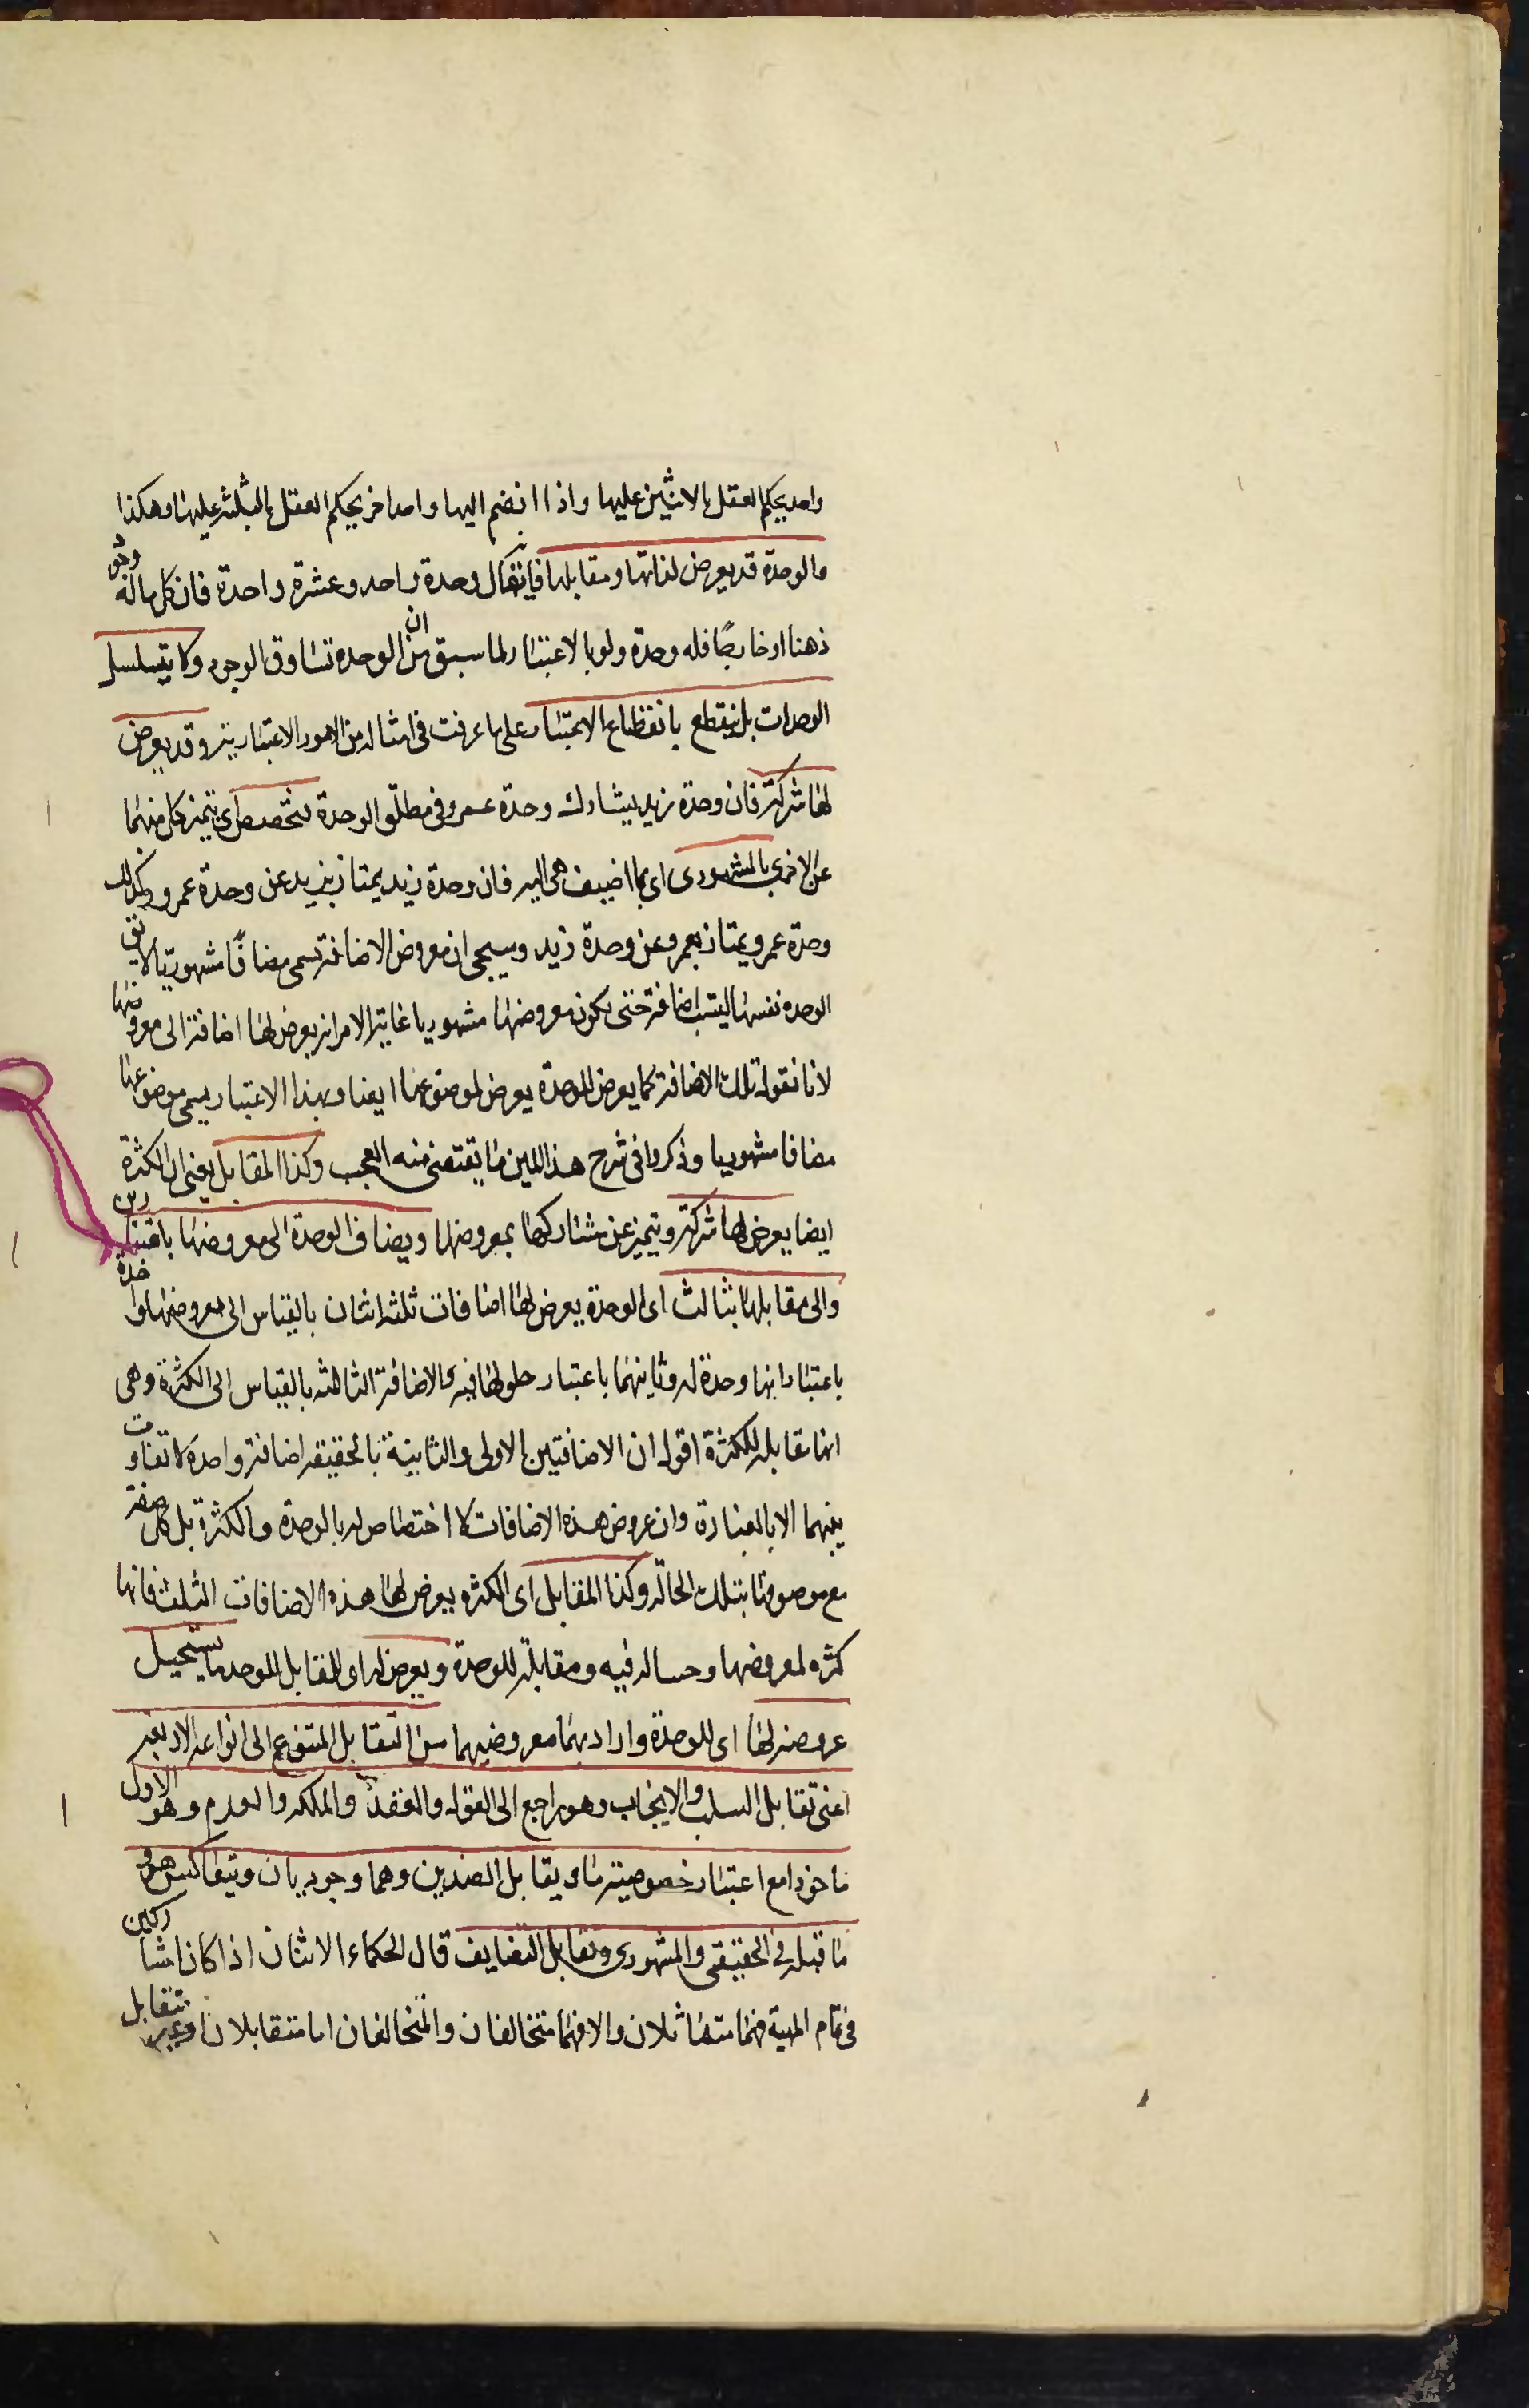 واحد يحكم العقل بالاثنين عليها واذا انضم اليها واحد اخر يحكم العقل بالثلثة عليها وهكذا
والوحدة قد يعرض لذاتها ومقابلها فانه يقال وحدة واحد وعشرة واحدة فان كل ماله وجود
ذهنا او خارجًا فله وحدة ولو بالاعتبار لما سبق من ان الوحدة تساوق الوجود ولا يتسلسل
الوحدات بل ينقطع بانقطاع الاعتبار على ما عرفت في امثاله من الامور الاعتبارية وقد يعرض
لها شركة فان وحدة زيد يشارك وحدة عمرو في مطلق الوحدة فتخصص اي يتميز كل منهما
عن الاخرى بالمشهوری ای بما اضیف هی الیه فان وحدة زيد يمتاز بزيد عن وحدة عمرو وكذلك
وحدة عمرو يمتاز بعمرو عن وحدة زيد وسيجي ان معروض الاضافة يسمى مضافًا مشهوريا لا يق
الوحدة نفسها ليست اضافة حتى يكون معروضها مشهوريا غاية الامر انه يعرض لها اضافة الى معروضها
لانا نقول تلك الاضافة كما يعرض للوحدة يعرض لموضوعها ايضا وبهذا الاعتبار يسمى موضوعها
مضافا مشهوريا وذكروا في شرح هذا المتن ما يقتضى منه العجب وكذا المقابل يعنى ان الكثرة
ايضا يعرض لها شركة ويتميز عن مشاركها بمعروضها ويضاف الوحدة الى معروضها باعتبارين
والى مقابلها بثالث اى الوحدة يعرض لها اضافات ثلثة اثنان بالقياس الى معروضها واحدة
باعتبار انها وحدة له وثانيتهما باعتبار حلولها فيه والاضافة الثالثة بالقياس الى الكثرة وهى
انها مقابلة للكثرة اقول ان الاضافتين الاولى والثانية بالحقيقة اضافة واحدة لا تفاوت
بينهما الا بالعبارة وان عروض هذه الاضافات لا اختصاص له بالوحدة والكثرة بل كل صفة
مع موصوفها بتلك الحالة وكذا المقابل اى الكثرة يعرض لها هذه الاضافات الثلث فانها
كثرة لمعروضها وحالة فيه ومقابلة للوحدة ويعرض له اى للمقابل للوحدة ما يستحيل
عروضه لها اى للوحدة واراد بهما معروضيهما من التقابل المتنوع الى انواعه الاربعة
اعنى تقابل السلب والايجاب وهو راجع الى القول والعقد والملكة والعدم وهو الاول
ماخوذا مع اعتبار خصوصية ما ويقابل الضدين وهما وجوديان ويتعاكس هو و
ما قبله فى الحقيقى والمشهورى وتقابل التضايف قال الحكماء الاثنان اذا كانا مشاركين
فى تمام المهية فهما متماثلان والا فهما متخالفان والمتخالفان اما متقابلان او غير متقابل